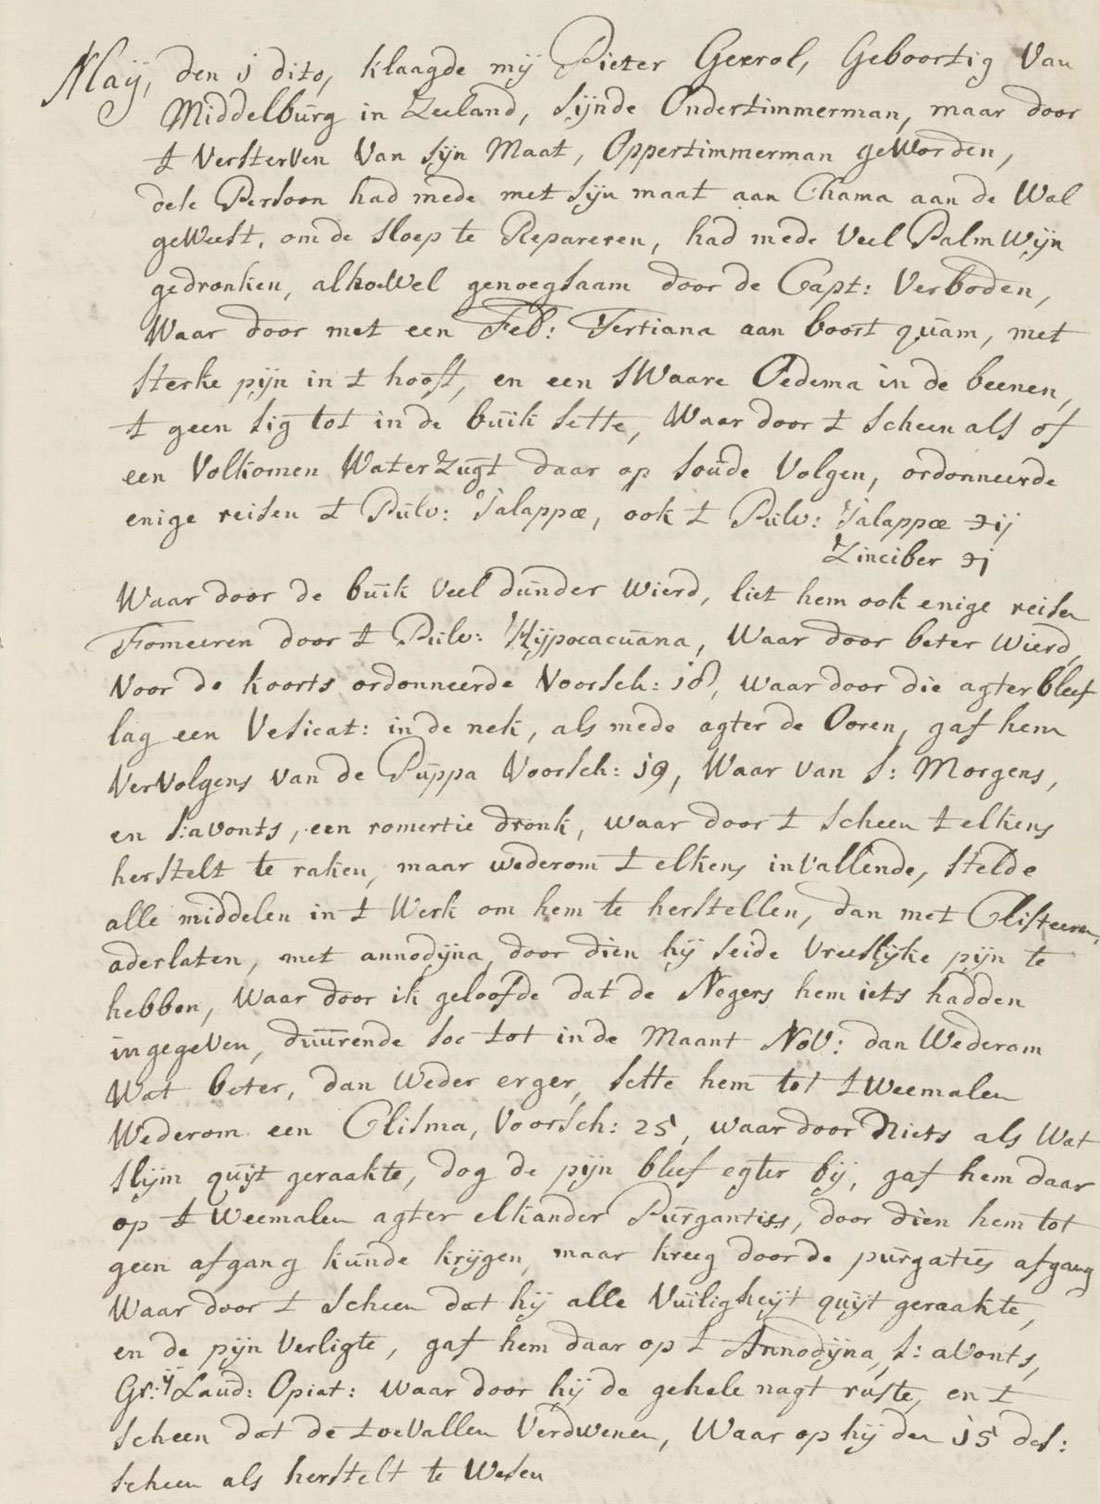 Maÿ, den j dito, klaagde mÿ Pieter Geerol, Geboortig Van
Middelburg in Zeeland, sÿnde Ondertimmerman, maar door
t Versterven Van sÿn Maat, Oppertimmerman geworden,
dese Persoon had mede met sÿn maat aan Chama aan de Wal
geweest, om de sloep te Repareren, had mede Veel Palm Wÿn
gedronken, alhoewel genoegsaam door de Capt: Verboden,
Waar door met een Feb: Tertiana aan boort quam, met
sterke pÿn in t hooft, en een sWaare Oedema in de beenen,
t geen sig tot in de buik sette, Waar door t scheen als of
een Volkomen WaterZugt daar op soude Volgen, ordonneerde
enige reisen t Pulv: Jalappæ, ook t Pulv: Jalappæ ℈ij
Zinciber ℈j
Waar door de buik Veel dunder Wierd, liet hem ook enige reisen
Fomeeren door t Pulv: Hÿpocacuana, Waar door beter Wierd,
Voor de koorts ordonneerde Voorsch: 18, waar door die agter bleef
lag een Vesicat: in de nek, als mede agter de Ooren, gaf hem
VerVolgens van de Puppa Voorsch: 19, Waar van s: Morgens,
en s:avonts, een romertie dronk, waar door t scheen t elkens
herstelt te raken, maar wederom t elkens inVallende, stelde
alle middelen in t Werk om hem te herstellen, dan met Clisteeren,
aderlaten, met annodÿna, door dien hÿ seide Vreeslÿke pÿn te
hebben, Waar door ik geloofde dat de Negers hem iets hadden
ingegeven, duurende soo tot in de Maant Nov: dan Wederom
Wat beter, dan Weder erger, sette hem tot tweemalen
Wederom een Clisma, Voorsch: 25, waar door Niets als Wat
slÿm quÿt geraakte, dog de pÿn bleef egter bÿ, gaf hem daar
op t Weemalen agter elkander Purgantiss, door dien hem tot
geen afgang kunde krÿgen, maar kreeg door de purgaties afgang
Waar door t scheen dat hÿ alle Vuiligheÿt quÿt geraakte,
en de pÿn Verligte, gaf hem daar op t Annodÿna, s: avonts,
Gr:ÿ Laud: Opiat: Waar door hÿ de gehele nagt ruste, en t
scheen dat de toeVallen Verdwenen, Waar op hÿ den 15 des:
scheen als herstelt te Wesen